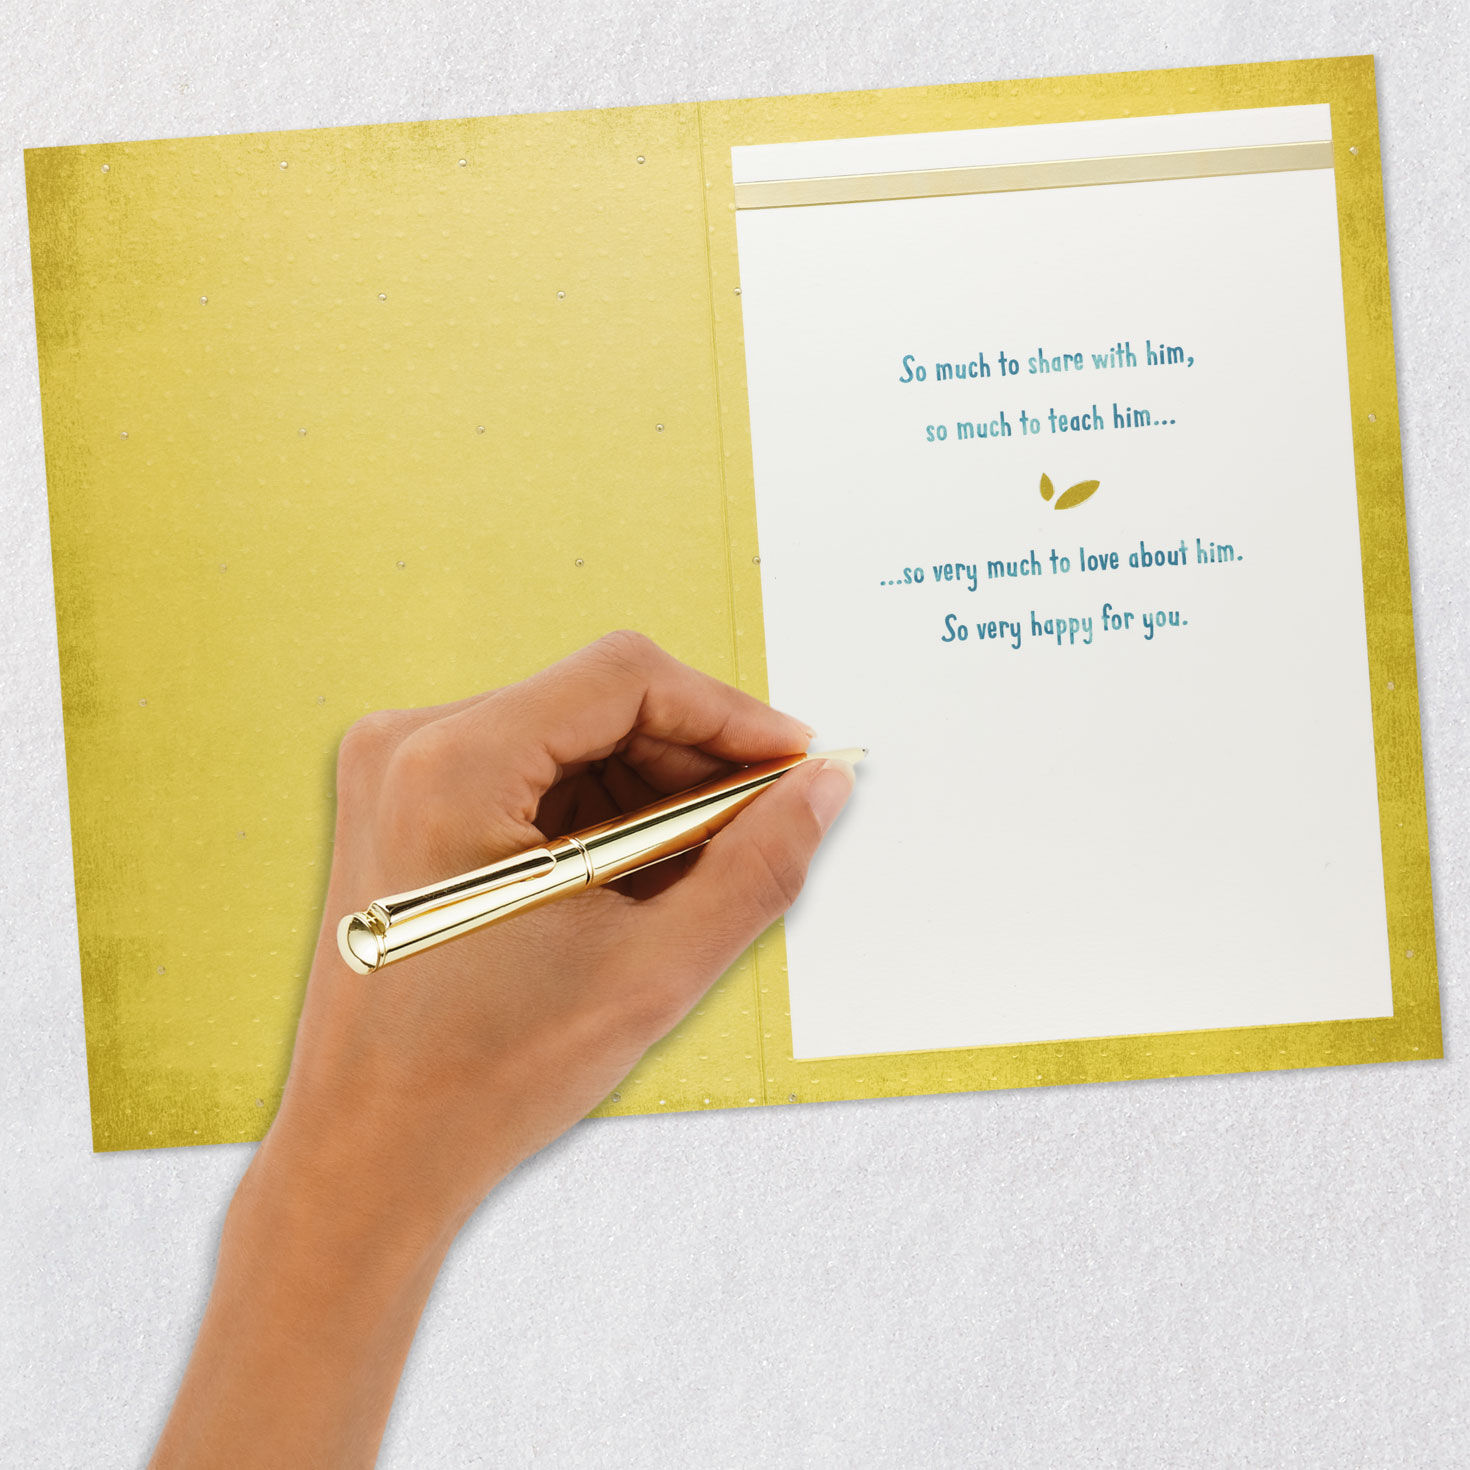 So much to share with him,
so much to teach him...
...so very much to love about him.
So very happy for you.